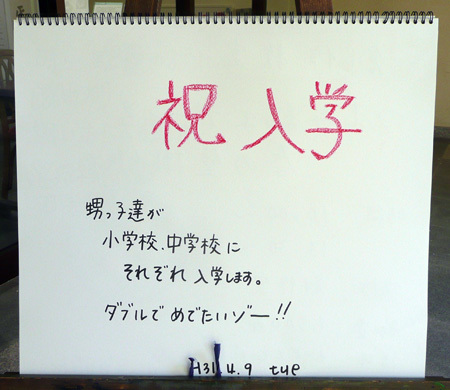 祝 入学
甥っ子達が
小学校、中学校に
それぞれ入学します。
ダブルでめでたいゾー!!
H31.4.9 tue